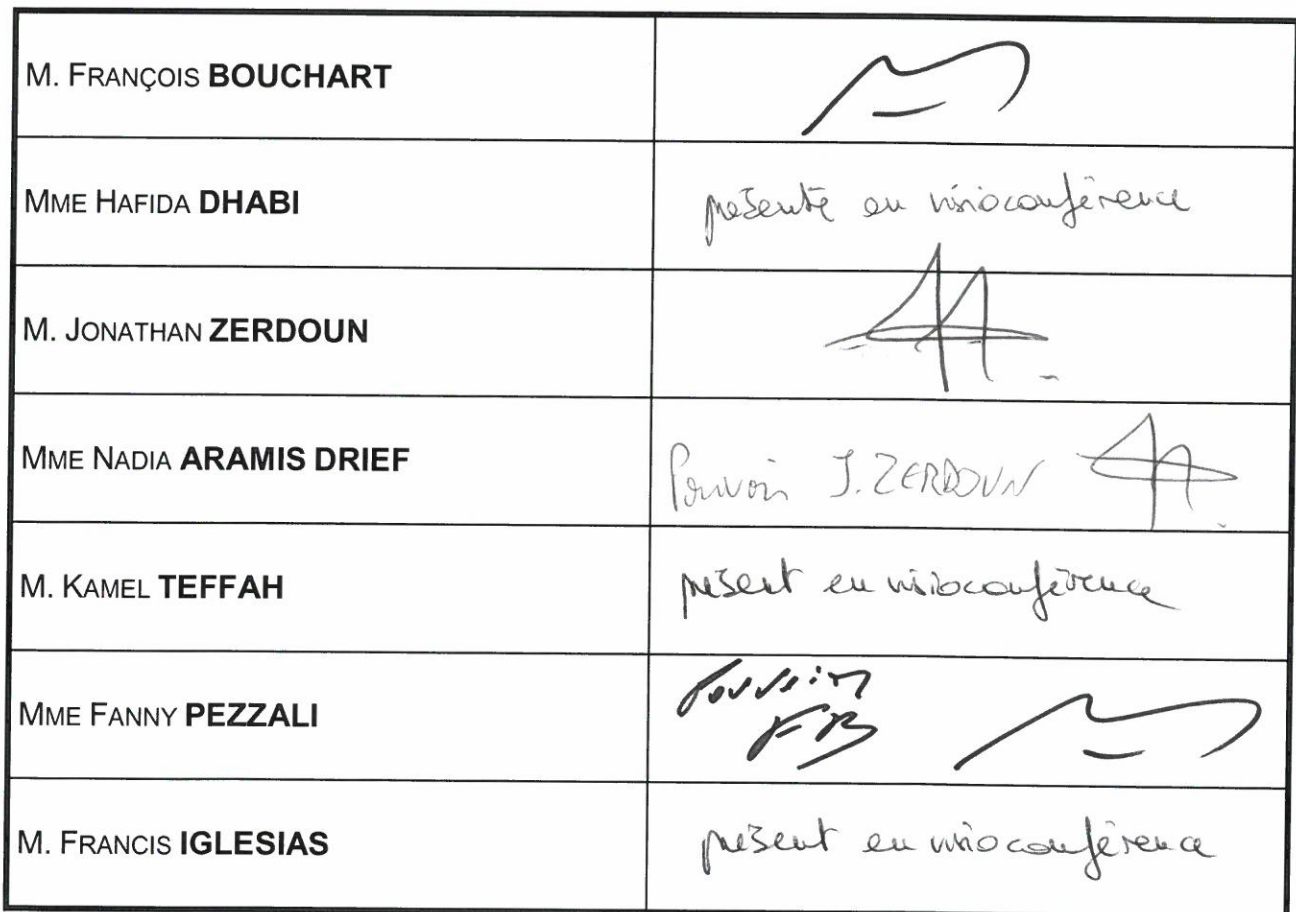 M. FRANÇOIS BOUCHART
MME HAFIDA DHABI
présente en visioconférence
M. JONATHAN ZERDOUN
MME NADIA ARAMIS DRIEF
Pouvoir J. ZERDOUN
M. KAMEL TEFFAH
présent en visioconférence
MME FANNY PEZZALI
Pouvoir
FB
M. FRANCIS IGLESIAS
présent en visioconférence